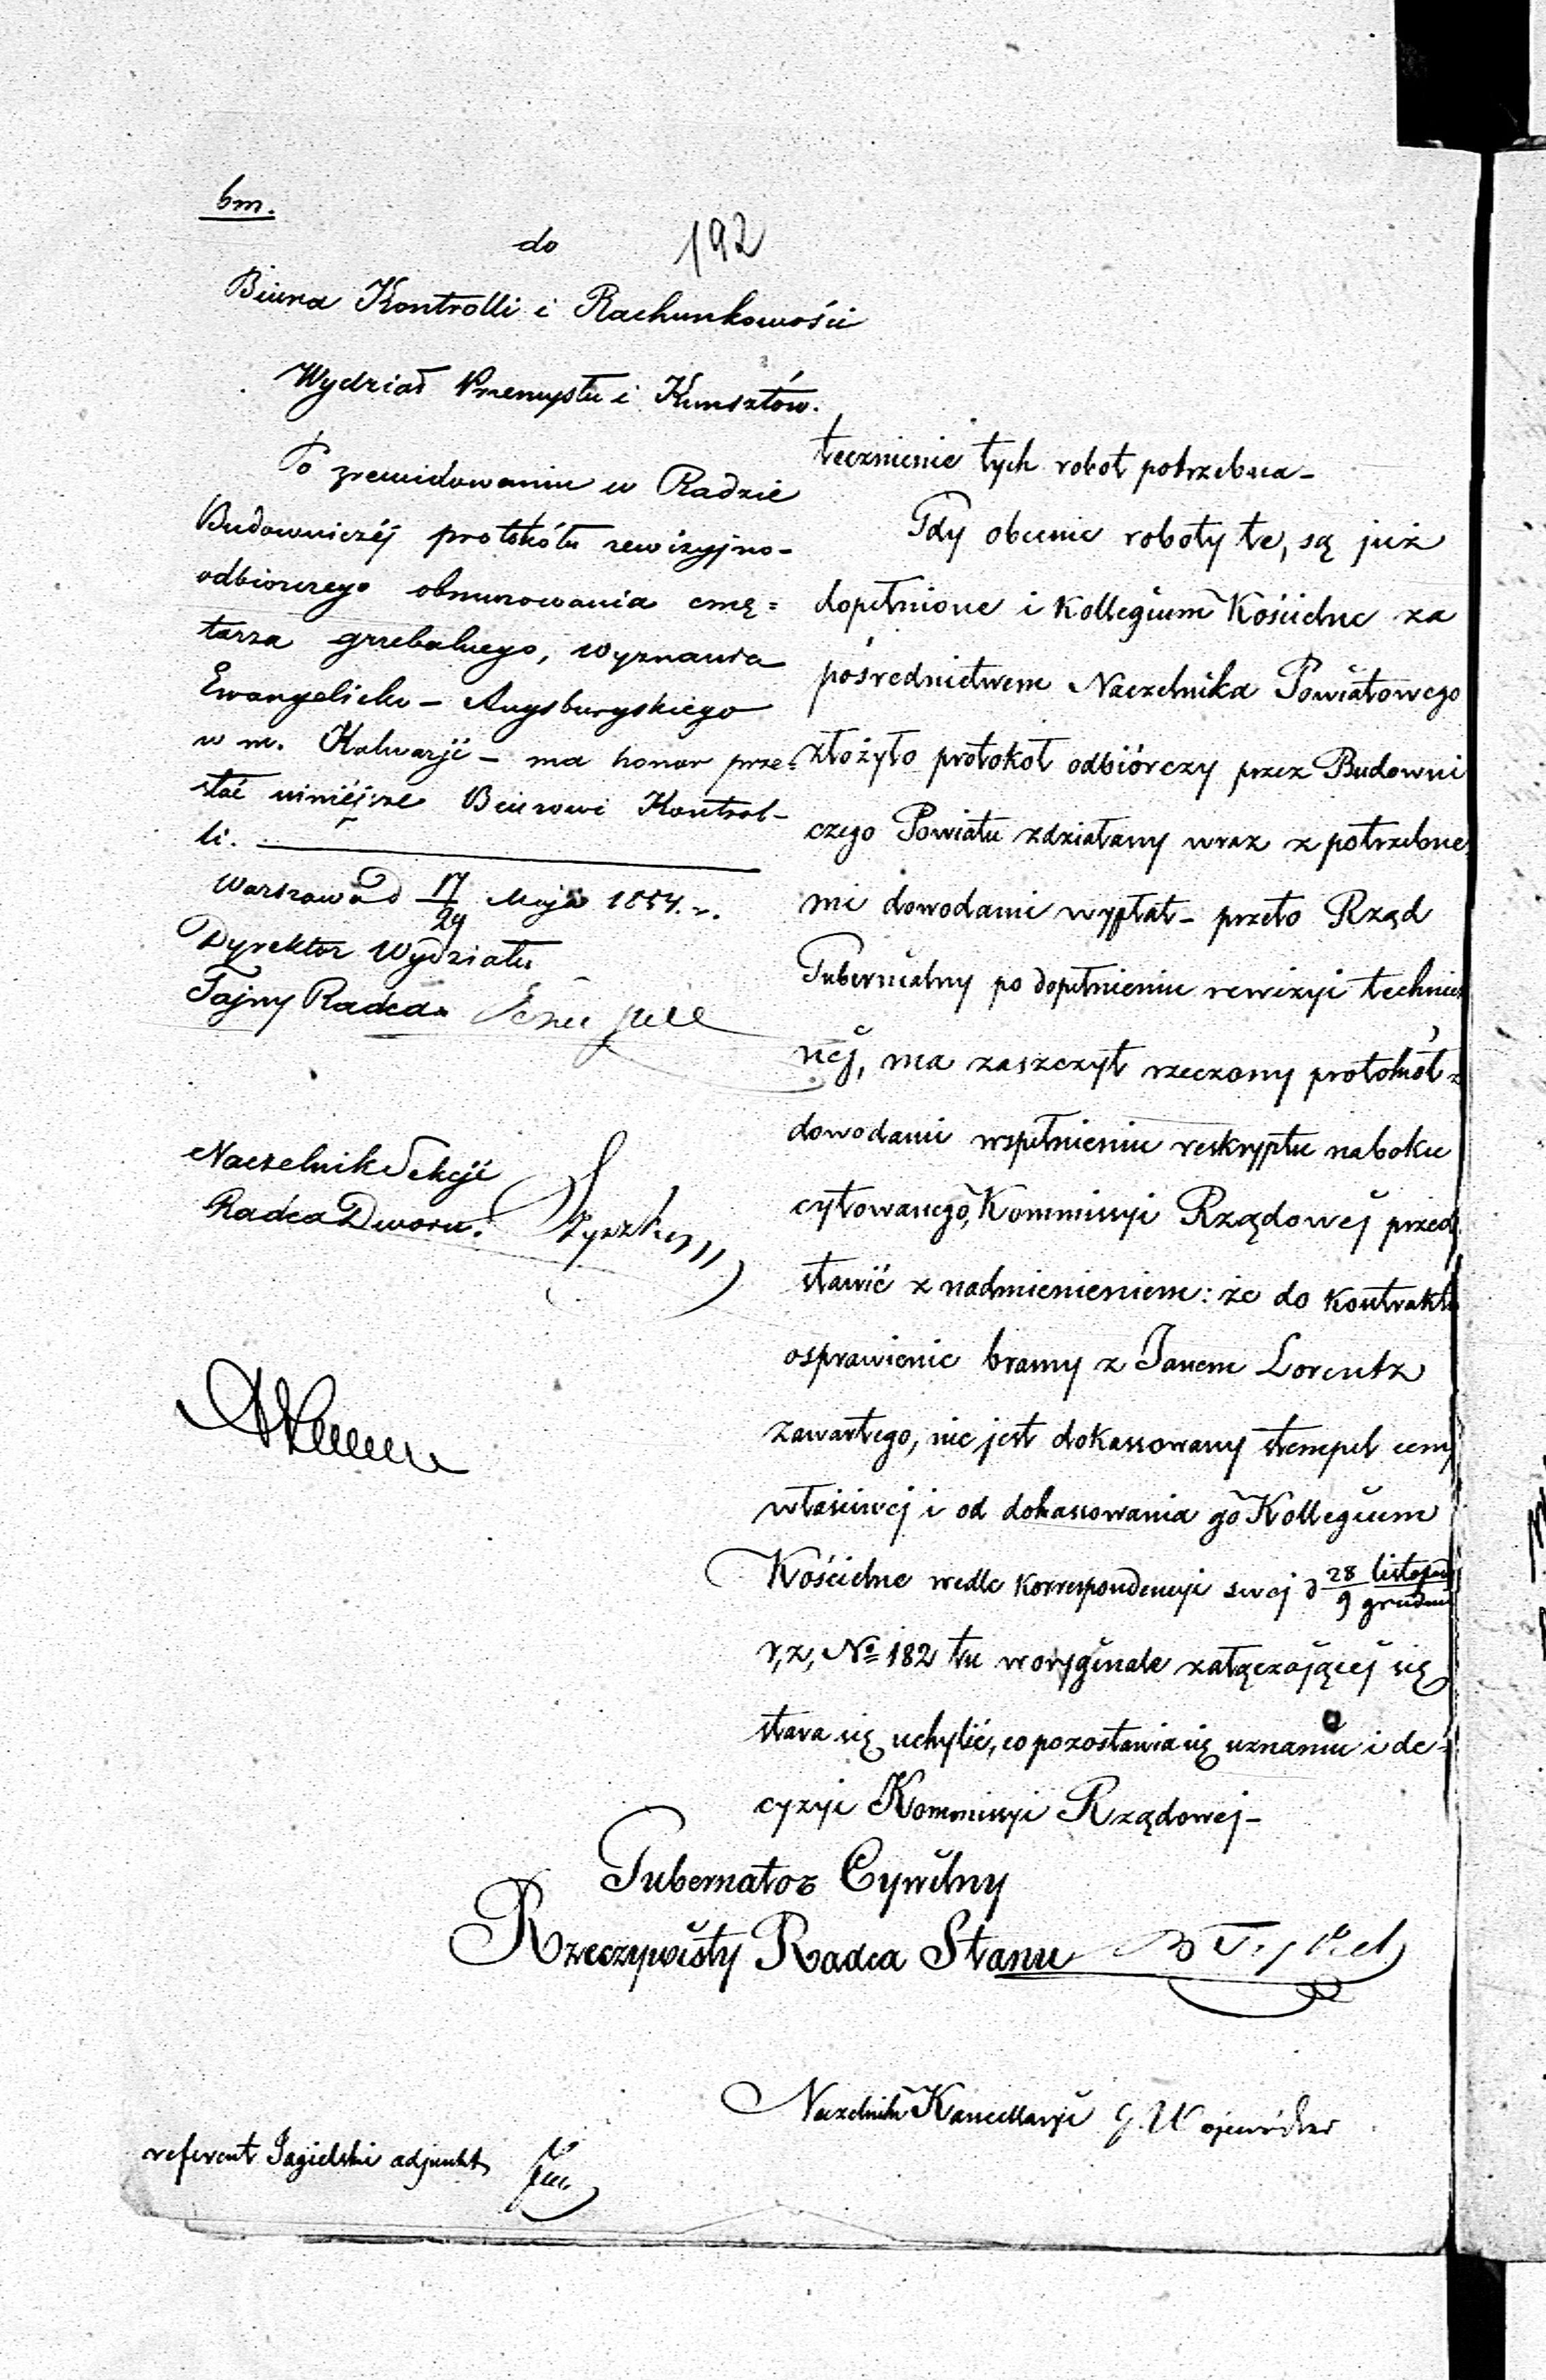 bm.
do
192
Biura Kontrolli i Rachunkowości
Wydział Przemysłu i Kunsztów.
Po zrewidowaniu w Radzie
Budowniczéj protokółu rewizyjno-
odbiorczego obmurowania cmę=
tarza grzebalnego, wyznania
Ewangelicko - Augsburgskiego
w m. Kalwarji - ma honor prze=
słać niniéjsze Biurowi Kontrol-
li.
Warszawa D 17/29 Maja 1854. r.
Dyrektor Wydziału
Tajny Radca
Naczelnik Sekcji
Radca Dworu.
tecznienie tych robot potrzebna -
Gdy obecnie roboty te, są już
dopełnione i Kollegium Kościelne za
pośrednictwem Naczelnika Powiatowego
złożyło protokoł odbiórczy przez Budowni
czego Powiatu zdziałany wraz z potrzebne
mi dowodami wypłat - przeto Rząd
Gubernialny po dopełnieniu rewizyi technicz
nej, ma zaszczyt rzeczony protokół z
dowodami wspełnieniu reskryptu naboku
cytowanego, Kommissyi Rządowej przed
stawić z nadmienieniem: że do kontraktu
osprawienie bramy z Janem Lorentz
zawartego, nie jest dokassowany stempel ceny
właściwej i od dokassowania go Kollegium
Kościelne wedle korrespondencyi swej d 28 listopad/9 grudnia
r, z, No 182 tu woryginale załączającej się
stara się uchylić, co pozostawia się uznaniu i de=
cyzyi Kommissyi Rządowej -
Gubernator Cywilny
Rzeczywisty Radca Stanu
Naczelnik Kancellaryi
referent Jagielski adjunkt